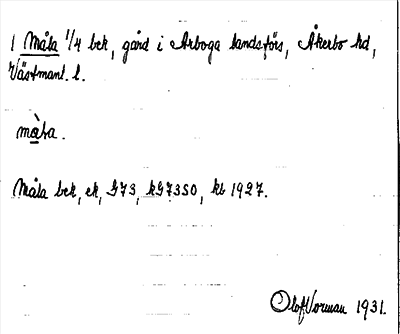 1 Måla 1/4 bek, gård i Arboga landsförs, Åkerbo hd,
Västmanl. l.
mà̱la.
Måla bek, ek, G73, kG73SO, kb 1927.
Olof Vorman 1931.